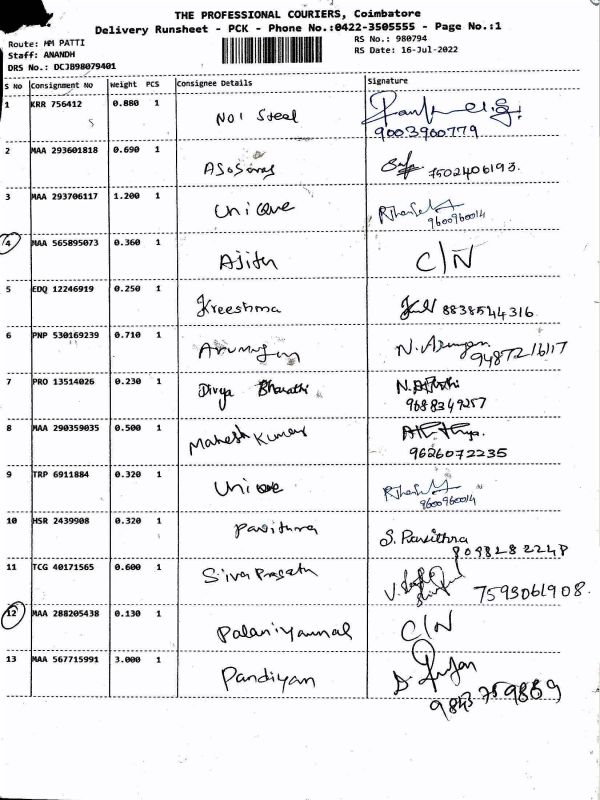 THE PROFESSIONAL COURIERS, Coimbatore
Delivery Runsheet - PCK - Phone No.:0422-3505555 - Page No.:1
Route: MM PATTI
RS No.: 980794
Staff: ANANDH
RS Date: 16-Jul-2022
DRS No.: DCJB98079401
S No Consignment No Weight PCS Consignee Details Signature
1 KRR 756412 0.880 1 No1 Steel
9003900779
2 MAA 293601818 0.690 1 7502406193.
3 MAA 293706117 1.200 1 Unique
9600960014
4 MAA 565895073 0.360 1 Ajith C/N
5 EDQ 12246919 0.250 1 Kreeshma 8838544316
6 PNP 530169239 0.710 1 Arumugam N. 9487216117
7 PRO 13514026 0.230 1 Divya Bharathi
9688349257
8 MAA 290359035 0.500 1 Mahesh Kumar
9626072235
9 TRP 6911884 0.320 1 Unique
9600960014
10 HSR 2439908 0.320 1 Pavithra S. Pavithra
11 TCG 40171565 0.600 1 Siva Prasath 7593061908.
12 MAA 288205438 0.130 1 Palaniyammal C/N
13 MAA 567715991 3.000 1 Pandiyan